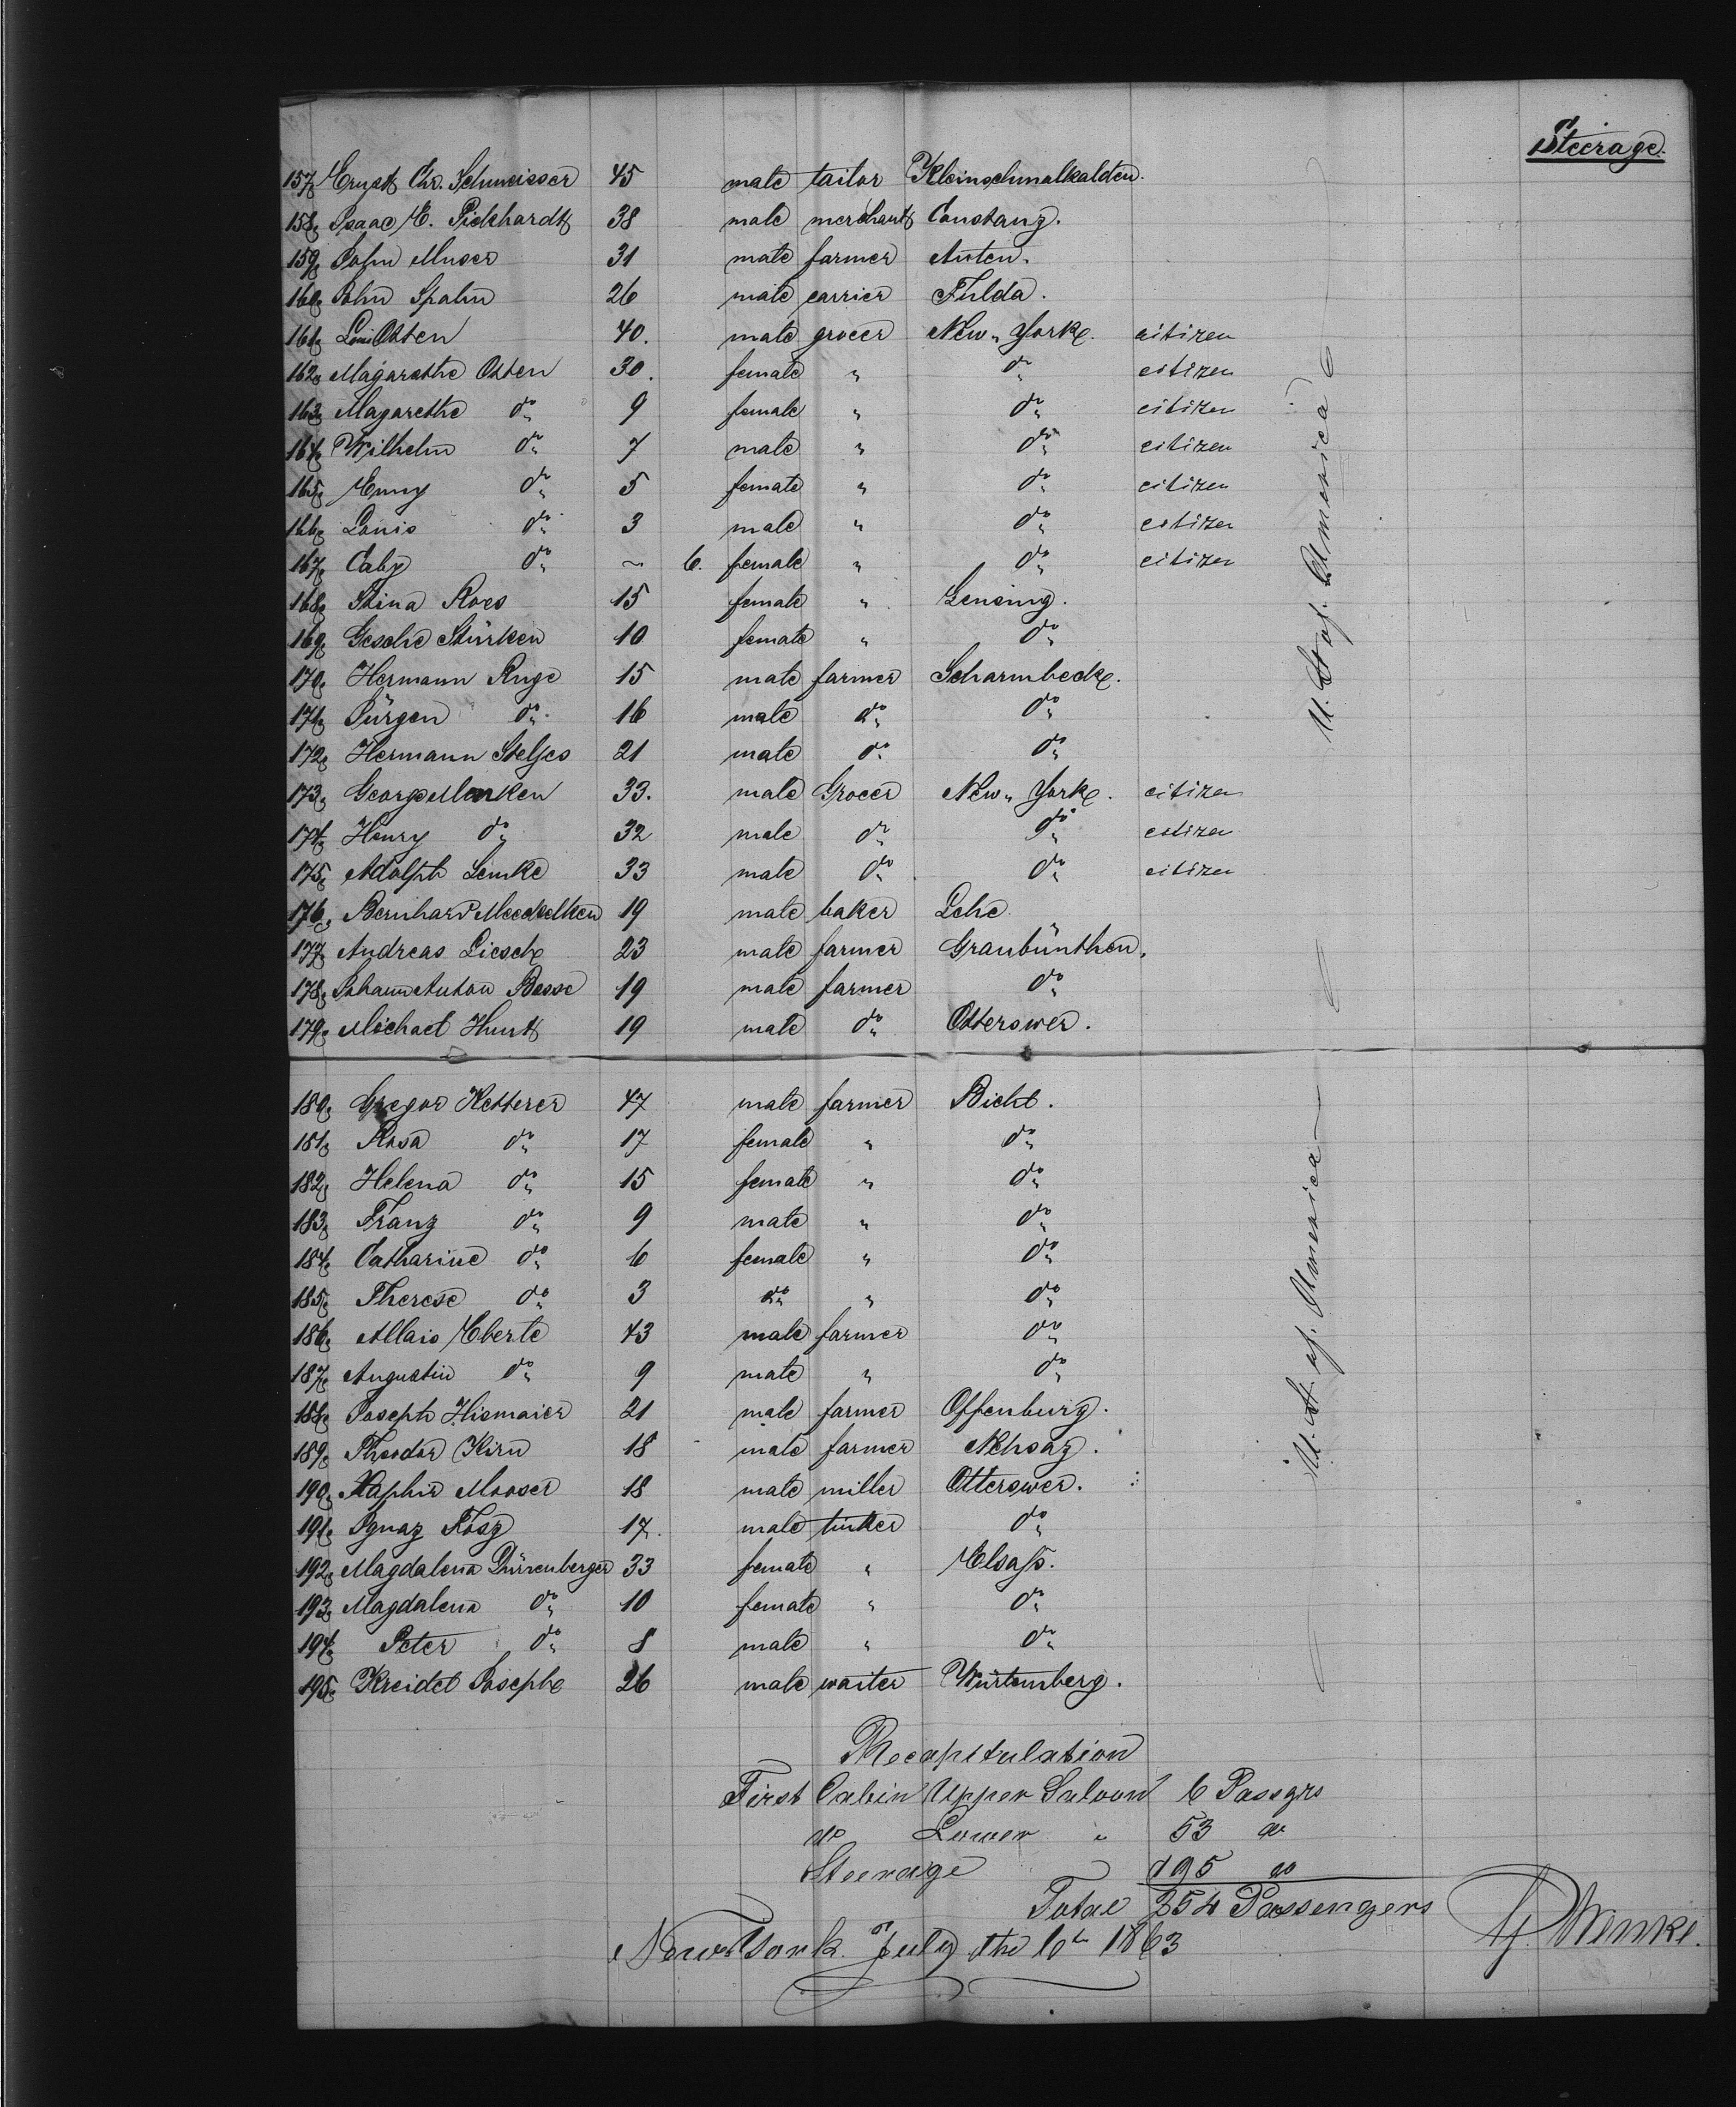 Steerage.
157, Ernst Chr. Schmeisser 45 male tailor Kleinschmalkalden.
158, Isaac E. Pickhardt 38 male merchant Constanz.
159, John Muser 31 male farmer Auten.
160, John Spahn 26 male carrier Fulda.
161, Louis Osten 40. male grocer New-York. citizen
162, Magarethe Osten 30. female " do citizen
163, Magarethe do 9 female " do citizen
164, Wilhelm do 7 male " do citizen
165, Emmy do 5 female " do citizen
166, Louis do 3 male " do citizen
167, Caby do ~ 6. female " do citizen
168, Stina Roes 15 female " Lensing.
169, Gesche Stürken 10 female " do
170, Hermann Ruge 15 male farmer Scharmbeck.
171, Jürgen do 16 male do do
172, Hermann Steljes 21 male do do
173, George Menken 33. male Grocer New-York. citizen
174, Henry do 32 male do do citizen
175, Adolph Lemke 33 male do do citizen
176, Bernhard 19 male baker Lehe
177, Andreas Liesch 23 male farmer Graubünthen.
178, Johann Anton Basse 19 male farmer do
179, Michael Hurst 19 male do Otterswer.
U. St. of. America
180, Gregor Ketterer 47 male farmer Bicht.
181, Rosa do 17 female " do
182, Helena do 15 female " do
183, Franz do 9 male " do
184, Catharine do 6 female " do
185, Therese do 3 do " do
186, Allais Eberle 43 male farmer do
187, Augustin do 9 male " do
188, Joseph Hismaier 21 male farmer Offenburg.
189, Theodor Kirn 18 male farmer
190, Xaphir Mooser 18 male miller Otterswer.
191, Ignaz 17. male tinker do
192, Magdalena Dürrenberger 33 female " Elsaß.
193, Magdalena do 10 female " do
194, Peter do 8 male " do
195, Kreidel Joseph 26 male waiter Würtemberg.
U. St. of. America
Recapitulation
First Cabin Upper Saloon 6 Passgrs
do Lower " 53 do
Steerage 195 do
Total 254 Passengers
New York July the 6th 1863
Wenke.